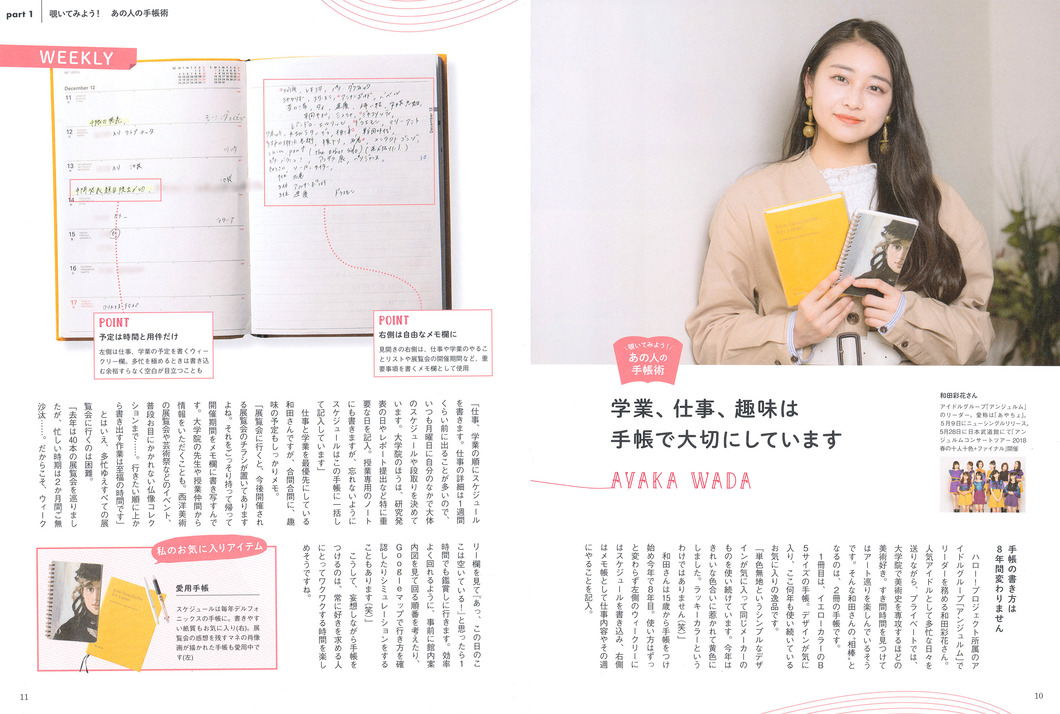 覗いてみよう！
あの人の
手帳術
学業、仕事、趣味は
手帳で大切にしています
AYAKA WADA
和田彩花さん
アイドルグループ「アンジュルム」
のリーダー。愛称は「あやちょ」。
5月9日にニューシングルリリース。
5月28日に日本武道館にて『アン
ジュルムコンサートツアー2018
春の十人十色+ファイナル』開催
手帳の書き方は
8年間変わりません
ハロー！プロジェクト所属のア
イドルグループ「アンジュルム」で
リーダーを務める和田彩花さん。
人気アイドルとして多忙な日々を
送りながら、プライベートでは、
大学院で美術史を専攻するほどの
美術好き。すき間時間を見つけて
はアート巡りを楽しんでいるそう
です。そんな和田さんの“相棒”と
なるのは、2冊の手帳です。
1冊目は、イエローカラーのB
5サイズの手帳。デザインが気に
入り、ここ何年も使い続けている
お気に入りの逸品です。
「単色無地というシンプルなデザ
インが気に入って同じメーカーの
ものを使い続けています。今年は
きれいな色合いに惹かれて黄色に
しました。ラッキーカラーという
わけではありません（笑）」
和田さんは15歳から手帳をつけ
始め今年で8年目。使い方はずっ
と変わらず左側のウィークリーに
はスケジュールを書き込み、右側
はメモ帳として仕事内容やその週
にやることを記入。
10
part 1
覗いてみよう！ あの人の手帳術
WEEKLY
December 12
11
12
13
14
15
16
17
POINT
予定は時間と用件だけ
左側は仕事、学業の予定を書くウィー
クリー欄。多忙を極めるときは書き込
む余裕すらなく空白が目立つことも
POINT
右側は自由なメモ欄に
見開きの右側は、仕事や学業のやるこ
とリストや展覧会の開催期間など、重
要事項を書くメモ欄として使用
「仕事、学業の順にスケジュール
を書きます。仕事の詳細は1週間
くらい前に出ることが多いので、
いつも月曜日に自分のなかで大体
のスケジュールや段取りを決めて
います。大学院のほうは、研究発
表の日やレポート提出など特に重
要な日を記入。授業専用のノート
にも書きますが、忘れないように
スケジュールはこの手帳に一括し
て記入しています」
仕事と学業を最優先にしている
和田さんですが、合間合間に、趣
味の予定もしっかりメモ。
「展覧会に行くと、今後開催され
る展覧会のチラシが置いてあります
よね。それをごっそり持って帰って
開催期間をメモ欄に書き写すんで
す。大学院の先生や授業仲間から
情報をいただくことも。西洋美術
の展覧会や芸術祭などのイベント、
普段お目にかかれない仏像コレク
ションまで……。行きたい順に上か
ら書き出す作業は至福の時間です」
とはいえ、多忙ゆえすべての展
覧会に行くのは困難。
「去年は40本の展覧会を巡りまし
たが、忙しい時期は2か月間ご無
沙汰……。だからこそ、ウィーク
リー欄を見て『あっ、この日のこ
こは空いている！』と思ったら1
時間でも鑑賞しに行きます。効率
よく回れるように、事前に館内案
内図を見て回る順番を考えたり、
Googleマップで行き方を確
認したりシミュレーションをする
こともあります（笑）」
こうして、妄想しながら手帳を
つけるのは、常に好きを求める人
にとってワクワクする時間を楽し
めそうですね。
私のお気に入りアイテム
愛用手帳
スケジュールは毎年デルフォ
ニックスの手帳に。書きやす
い紙質もお気に入り(右)。展
覧会の感想を残すマネの肖像
画が描かれた手帳も愛用中で
す(左)
11